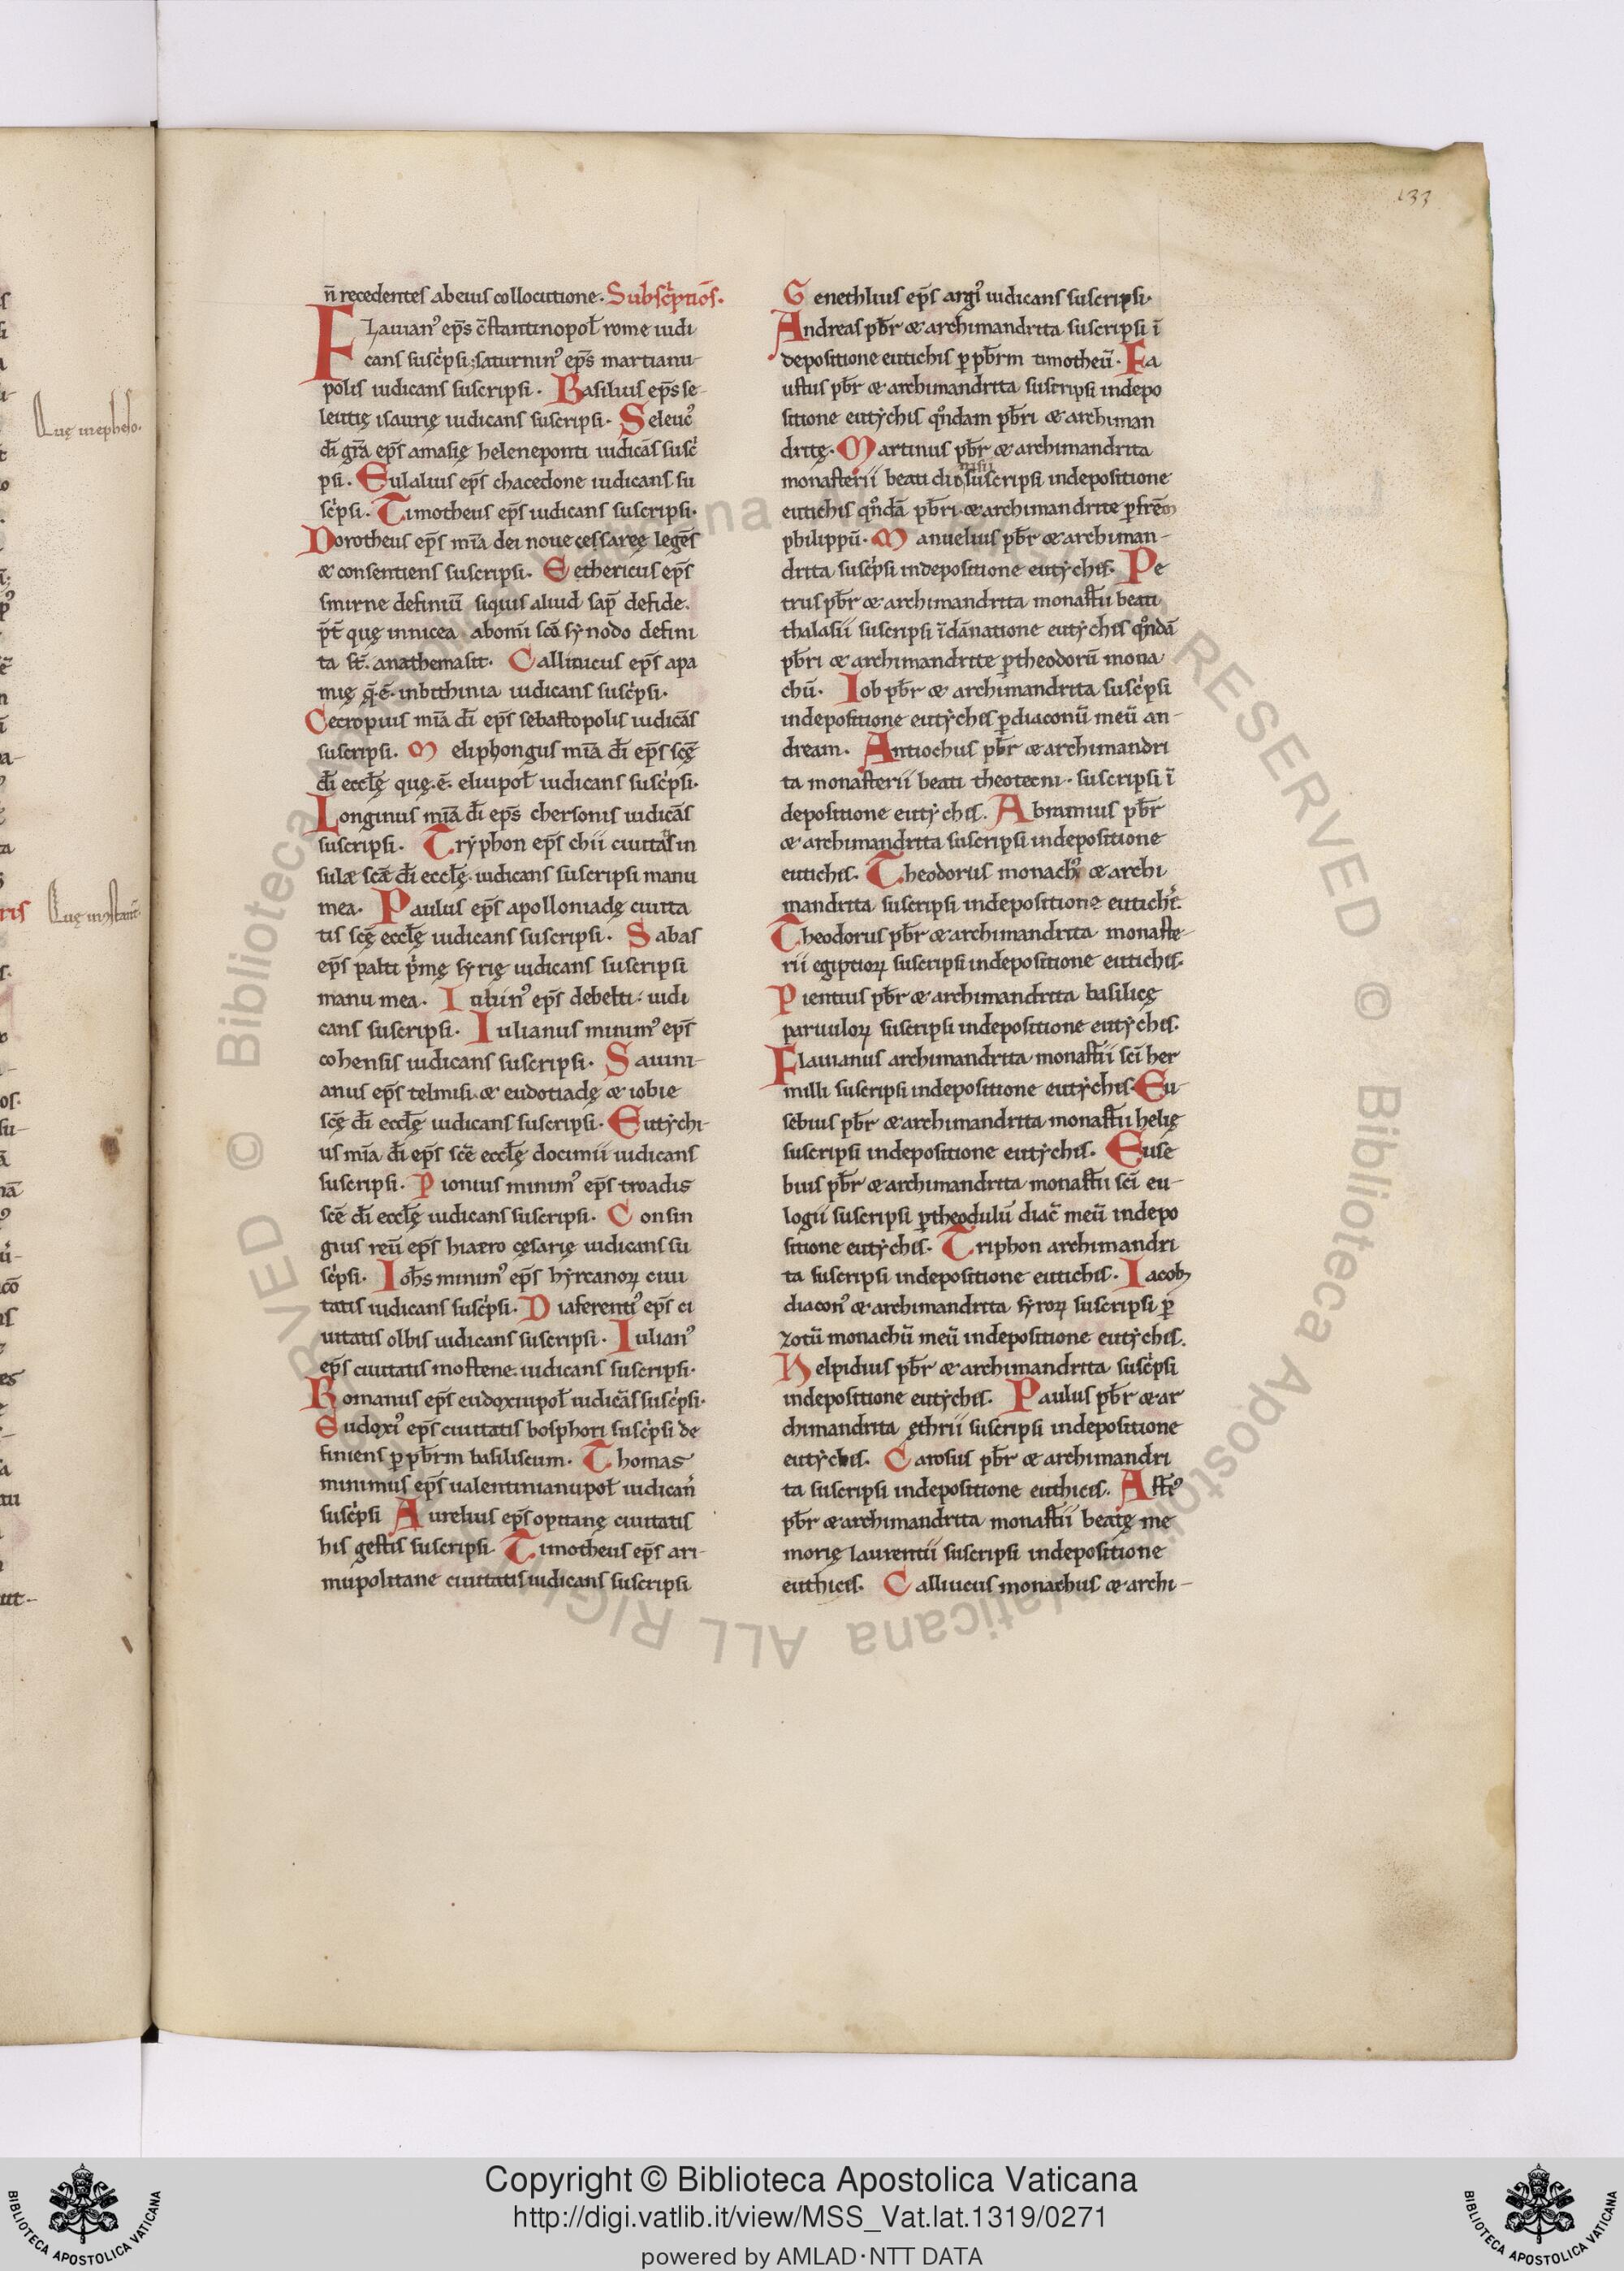 133
n̄ recedentes ab eius collocutione. Subsc̓ptiōs.
Flauian᾿ ep̄s c̄stantinopoł rome iudi
cans susc̓psi. saturnin᾿ ep̄s martianu
polis iudicans suscripsi. Basilius ep̄s se-
leutię isaurię iudicans suscripsi. Seleuc᾿
di gr̄a ep̄s amasię heleneponti iudicās susc̓
psi. Eulalius ep̄s chacedone iudicans su
sc̓psi. Timotheus ep̄s iudicans suscripsi.
Dorotheus ep̄s mīa dei noue cessaręe legēs
& consentiens suscripsi. Eethericus ep̄s
smirne definiuī siquis aliud sap̄ de fide.
p̄t̄ quę in nicea ab om̄i scā synodo defini
ta st̄. anathema sit. Callinicus ep̄s apa
mię q̄.ē. in bithinia iudicans susc̓psi.
Cecropius mīa di ep̄s sebastopolis iudicās
suscripsi. Meliphongus mīa di ep̄s scę̄
di eccłę que.ē. eliupoł iudicans susc̓psi.
Longinus mīa di ep̄s chersonis iudicās
suscripsi. Tryphon ep̄s chii ciuitatis in
sulæ scǣ di eccłę. iudicans suscripsi manu
mea. Paulus ep̄s apolloniadę ciuita
tis scę̄ eccłę iudicans suscripsi. Sabas
ep̄s palti p̓mę syrię iudicans suscripsi
manu mea. Iulian᾿ ep̄s debelti. iudi
cans suscripsi. Iulianus minim᾿ ep̄s
cohensis iudicans suscripsi. Sauini-
anus ep̄s telmisi. & eudotiadę & iobie
scę̄ di eccłę iudicans suscripsi. Eutychi-
us mīa di ep̄s scę̄ eccłę docimii iudicans
suscripsi. Pionius minim᾿ ep̄s troadis
scē di eccłę iudicans suscripsi. Consin
gius reū ep̄s hiaero cęsarię iudicans su
sc̓psi. Ioh̄s minim᾿ ep̄s hyrcanoꝝ ciui
tatis iudicans susc̓psi. Diaferenti᾿ ep̄s ci
uitatis olbis iudicans suscripsi. Iulian᾿
ep̄s ciuitatis mostene. iudicans suscripsi.
Romanus ep̄s eudoxiupoł iudicās susc̓psi.
Eudoxi᾿ ep̄s ciuitatis bosphori susc̓psi de
finiens ꝑ pb̄rm basiliscum. Thomas
minimus ep̄s ualentinianupoł iudican̄
susc̓psi Aurelius ep̄s opitanę ciuitatis
his gestis suscripsi. Timotheus ep̄s ari-
mupolitane ciuitatis iudicans suscripsi
Genethlius ep̄s argi᾿ iudicans suscripsi.
Andreas pb̄r & archimandrita suscripsi ī
depositione eutichis ꝑ pb̄rm timotheū. Fa
ustus pb̄r & archimandrita suscripsi in depo
sitione eutychis qn̊dam pb̄ri & archiman
dritę. Martinus pb̄r & archimandrita
monasterii beati dii suscripsi in depositione
eutichis qn̊dā pb̄ri. & archimandrite ꝑ frēm
philippū. Manuelius pb̄r & archiman-
drita susc̓psi in depositione eutychis. Pe
trus pb̄r & archimandrita monast̄ii beati
thalasii suscripsi ī dānatione eutychis qn̊dā
pb̄ri & archimandrite ꝑ theodorū mona
chū. Iob pb̄r & archimandrita susc̓psi
in depositione eutychis ꝑ diaconū meū an-
dream. Antiochus pb̄r & archimandri
ta monasterii beati theotecni. suscripsi ī
depositione eutychis. Abramius pb̄r
& archimandrita suscripsi in depositione
eutichis. Theodorus monach᾿ & archi
mandrita suscripsi in depositione eutich̓.
Theodorus pb̄r & archimandrita monaste-
rii egiptioꝝ suscripsi in depositione eutichis.
Pientius pb̄r & archimandrita basilicę
paruuloꝝ suscripsi in depositione eutychis.
Flauianus archimandrita monast̄ii sci̅ her
milli suscripsi in depositione eutychis. Eu-
sebius pb̄r & archimandrita monast̄ii helię
suscripsi in depositione eutychis. Euse
bius pb̄r & archimandrita monast̄ii sci̅ eu-
logii suscripsi ꝑ theodulū diac̄ meū in depo
sitione eutychis. Triphon archimandri
ta suscripsi in depositione eutichis. Iacob;
diacon᾿ & archimandrita syroꝝ suscripsi ꝑ
zotū monachū meū in depositione eutychis.
Helpidius pb̄r & archimandrita susc̓psi
in depositione eutychis. Paulus pb̄r & ar
chimandrita ęthrii suscripsi in depositione
eutychis. Carosus pb̄r & archimandri
ta suscripsi in depositione euthicis. Ast̄i᾿
pb̄r & archimandrita monast̄ii beatę me
morię laurentii suscripsi in depositione
euthicis. Callinicus monachus & archi-
Quę in epheso.
Copyright © Biblioteca Apostolica Vaticana
http://digi.vatlib.it/view/MSS_Vat.lat.1319/0271
powered by AMLAD·NTT DATA
BIBLIOTECA APOSTOLICA VATICANA
BIBLIOTECA APOSTOLICA VATICANA
© Biblioteca Apostolica Vaticana ALL RIGHTS RESERVED © Biblioteca Apostolica Vaticana ALL RIGHTS RESERVED